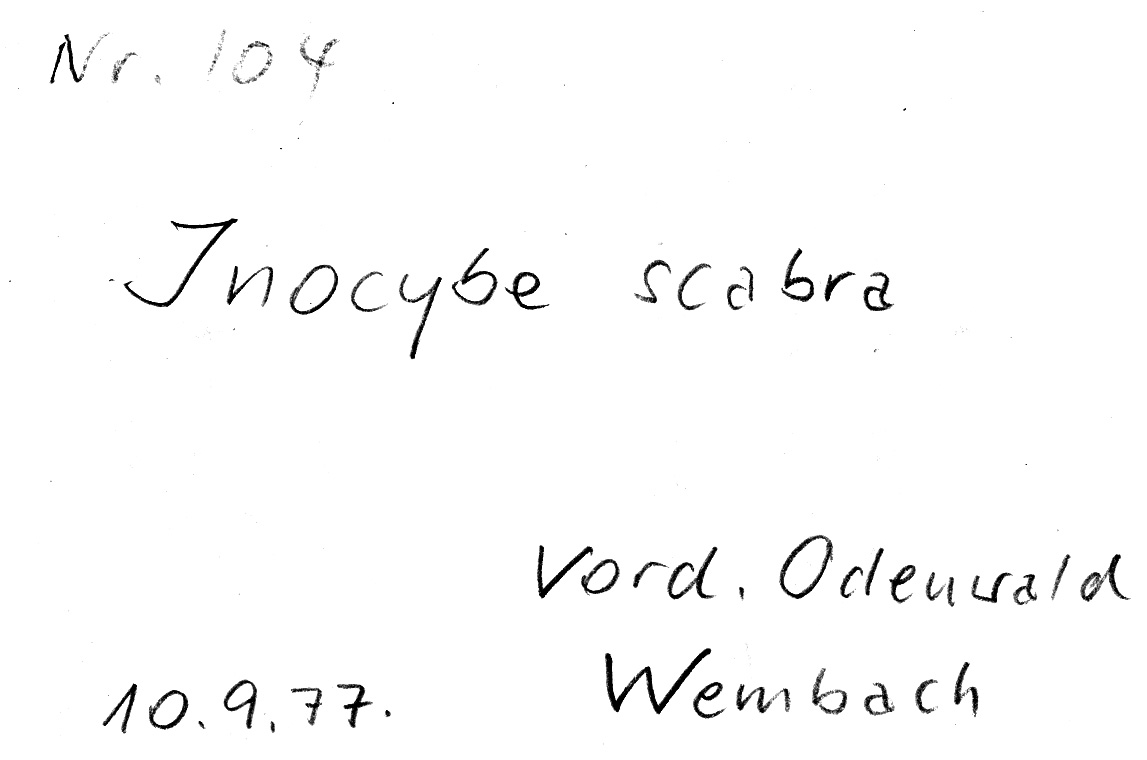 Nr. 104
Inocybe scabra
Vord. Odenwald
Wembach
10.9.77.